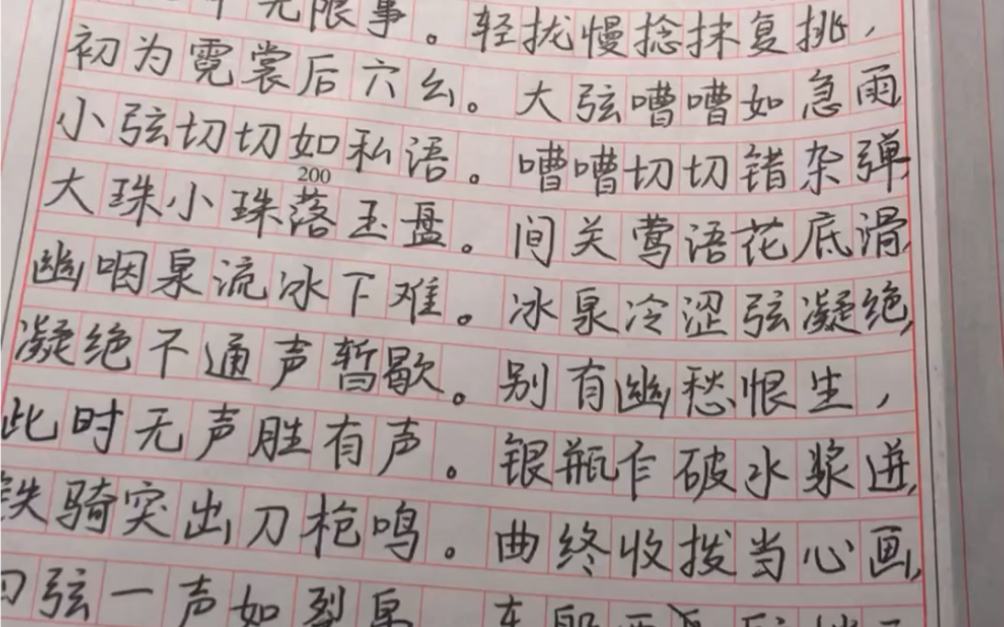 无限事。轻拢慢捻抹复挑，
初为霓裳后六幺。大弦嘈嘈如急雨
小弦切切如私语。嘈嘈切切错杂弹,
200
大珠小珠落玉盘。间关莺语花底滑,
幽咽泉流冰下难。冰泉冷涩弦凝绝,
凝绝不通声暂歇。别有幽愁恨生，
此时无声胜有声。银瓶乍破水浆迸,
铁骑突出刀枪鸣。曲终收拨当心画,
四弦一声如裂帛